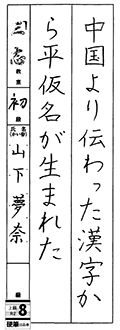 中国より伝わった漢字か
ら平仮名が生まれた
教室
初段
氏名
山下夢奈
級
8
硬筆